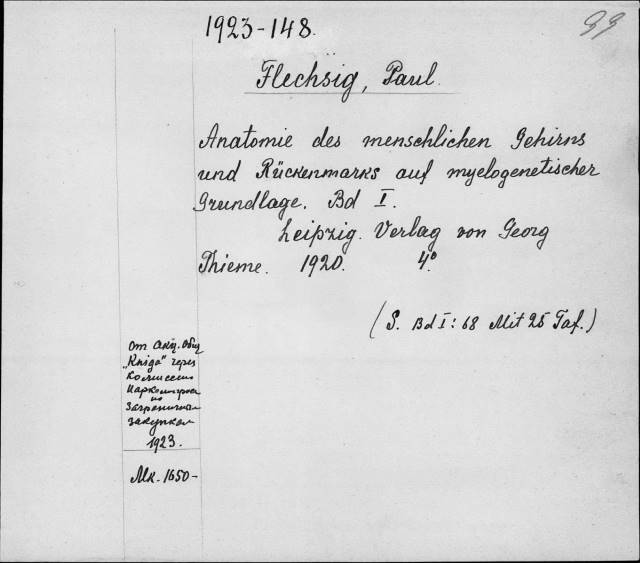 1923-148.
99
Flechsig, Paul.
Anatomie des menschlichen Gehirns
und Rückenmarks auf myelogenetischer
Grundlage. Bd I.
Leipzig. Verlag von Georg
Thieme. 1920. 4°
(S. Bd I: 68 Mit 25 Taf.)
От Акц. Общ
"Kniga" через
Комиссию
Наркомпроса
по
Заграничным
закупкам
1923.
Mk. 1650-